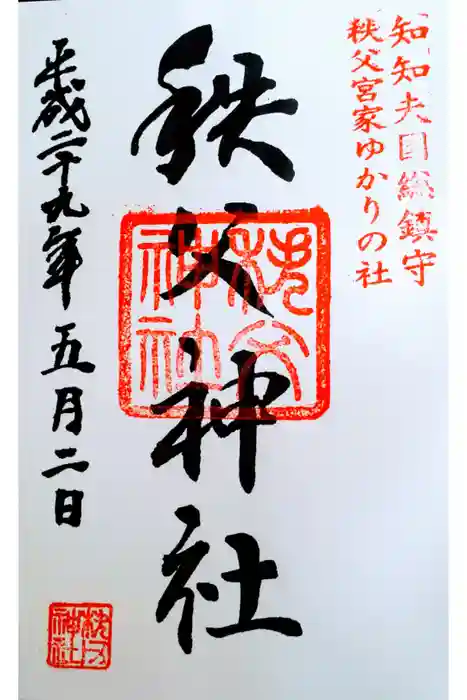 知知夫国総鎮守
秩父宮家ゆかりの社
秩父神社
秩父
神社
平成二十九年五月二日
秩父
神社